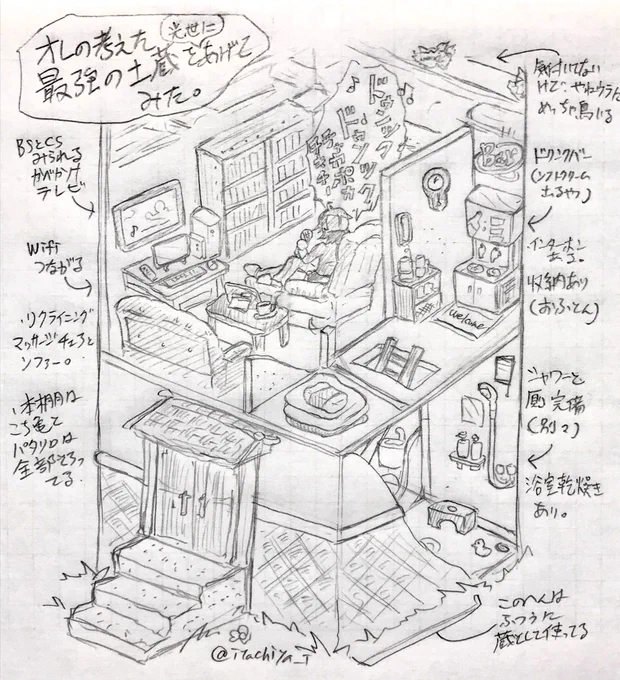 オレの考えた
光世に
最強の土蔵をあげて
みた。
BSとCS
みられる
かべかけ
テレビ
Wifi
つながる
・リクライニング
マッサージチェアと
ソファー。
本棚は
こち亀と
パタリロは
全部そろっ
てる
ドゥンツク
ドゥンツク
チャカポカ
チャカポカ
気付いてない
けど、やねウラに
めっちゃ鳥いる
ドリンクバー
(ソフトクリーム
もあるやつ)
インターホン
ある。
収納あり
(おふとん)
welcome
シャワーと
厠 完備
(別々)
浴室乾燥き
あり。
このへんは
ふつうに
蔵として使ってる
@itachiya_T